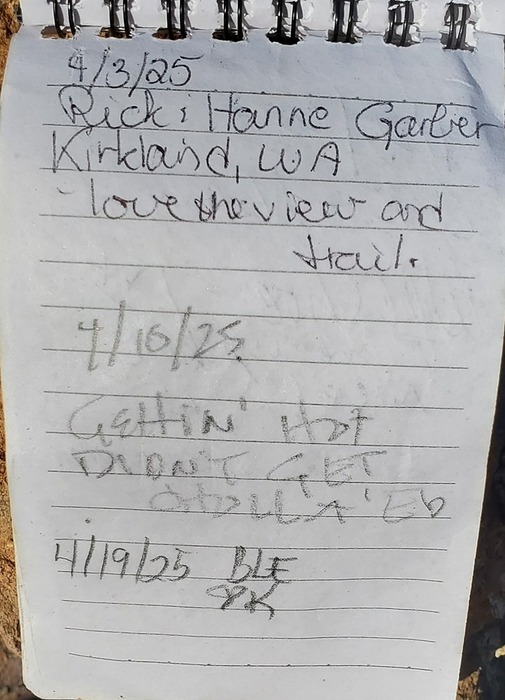 4/3/25
Rick & Hanne Garber
Kirkland, WA
- love the view and
trail.
4/16/25
GETTIN' HOT
DIDN'T GET
4/19/25 BLF